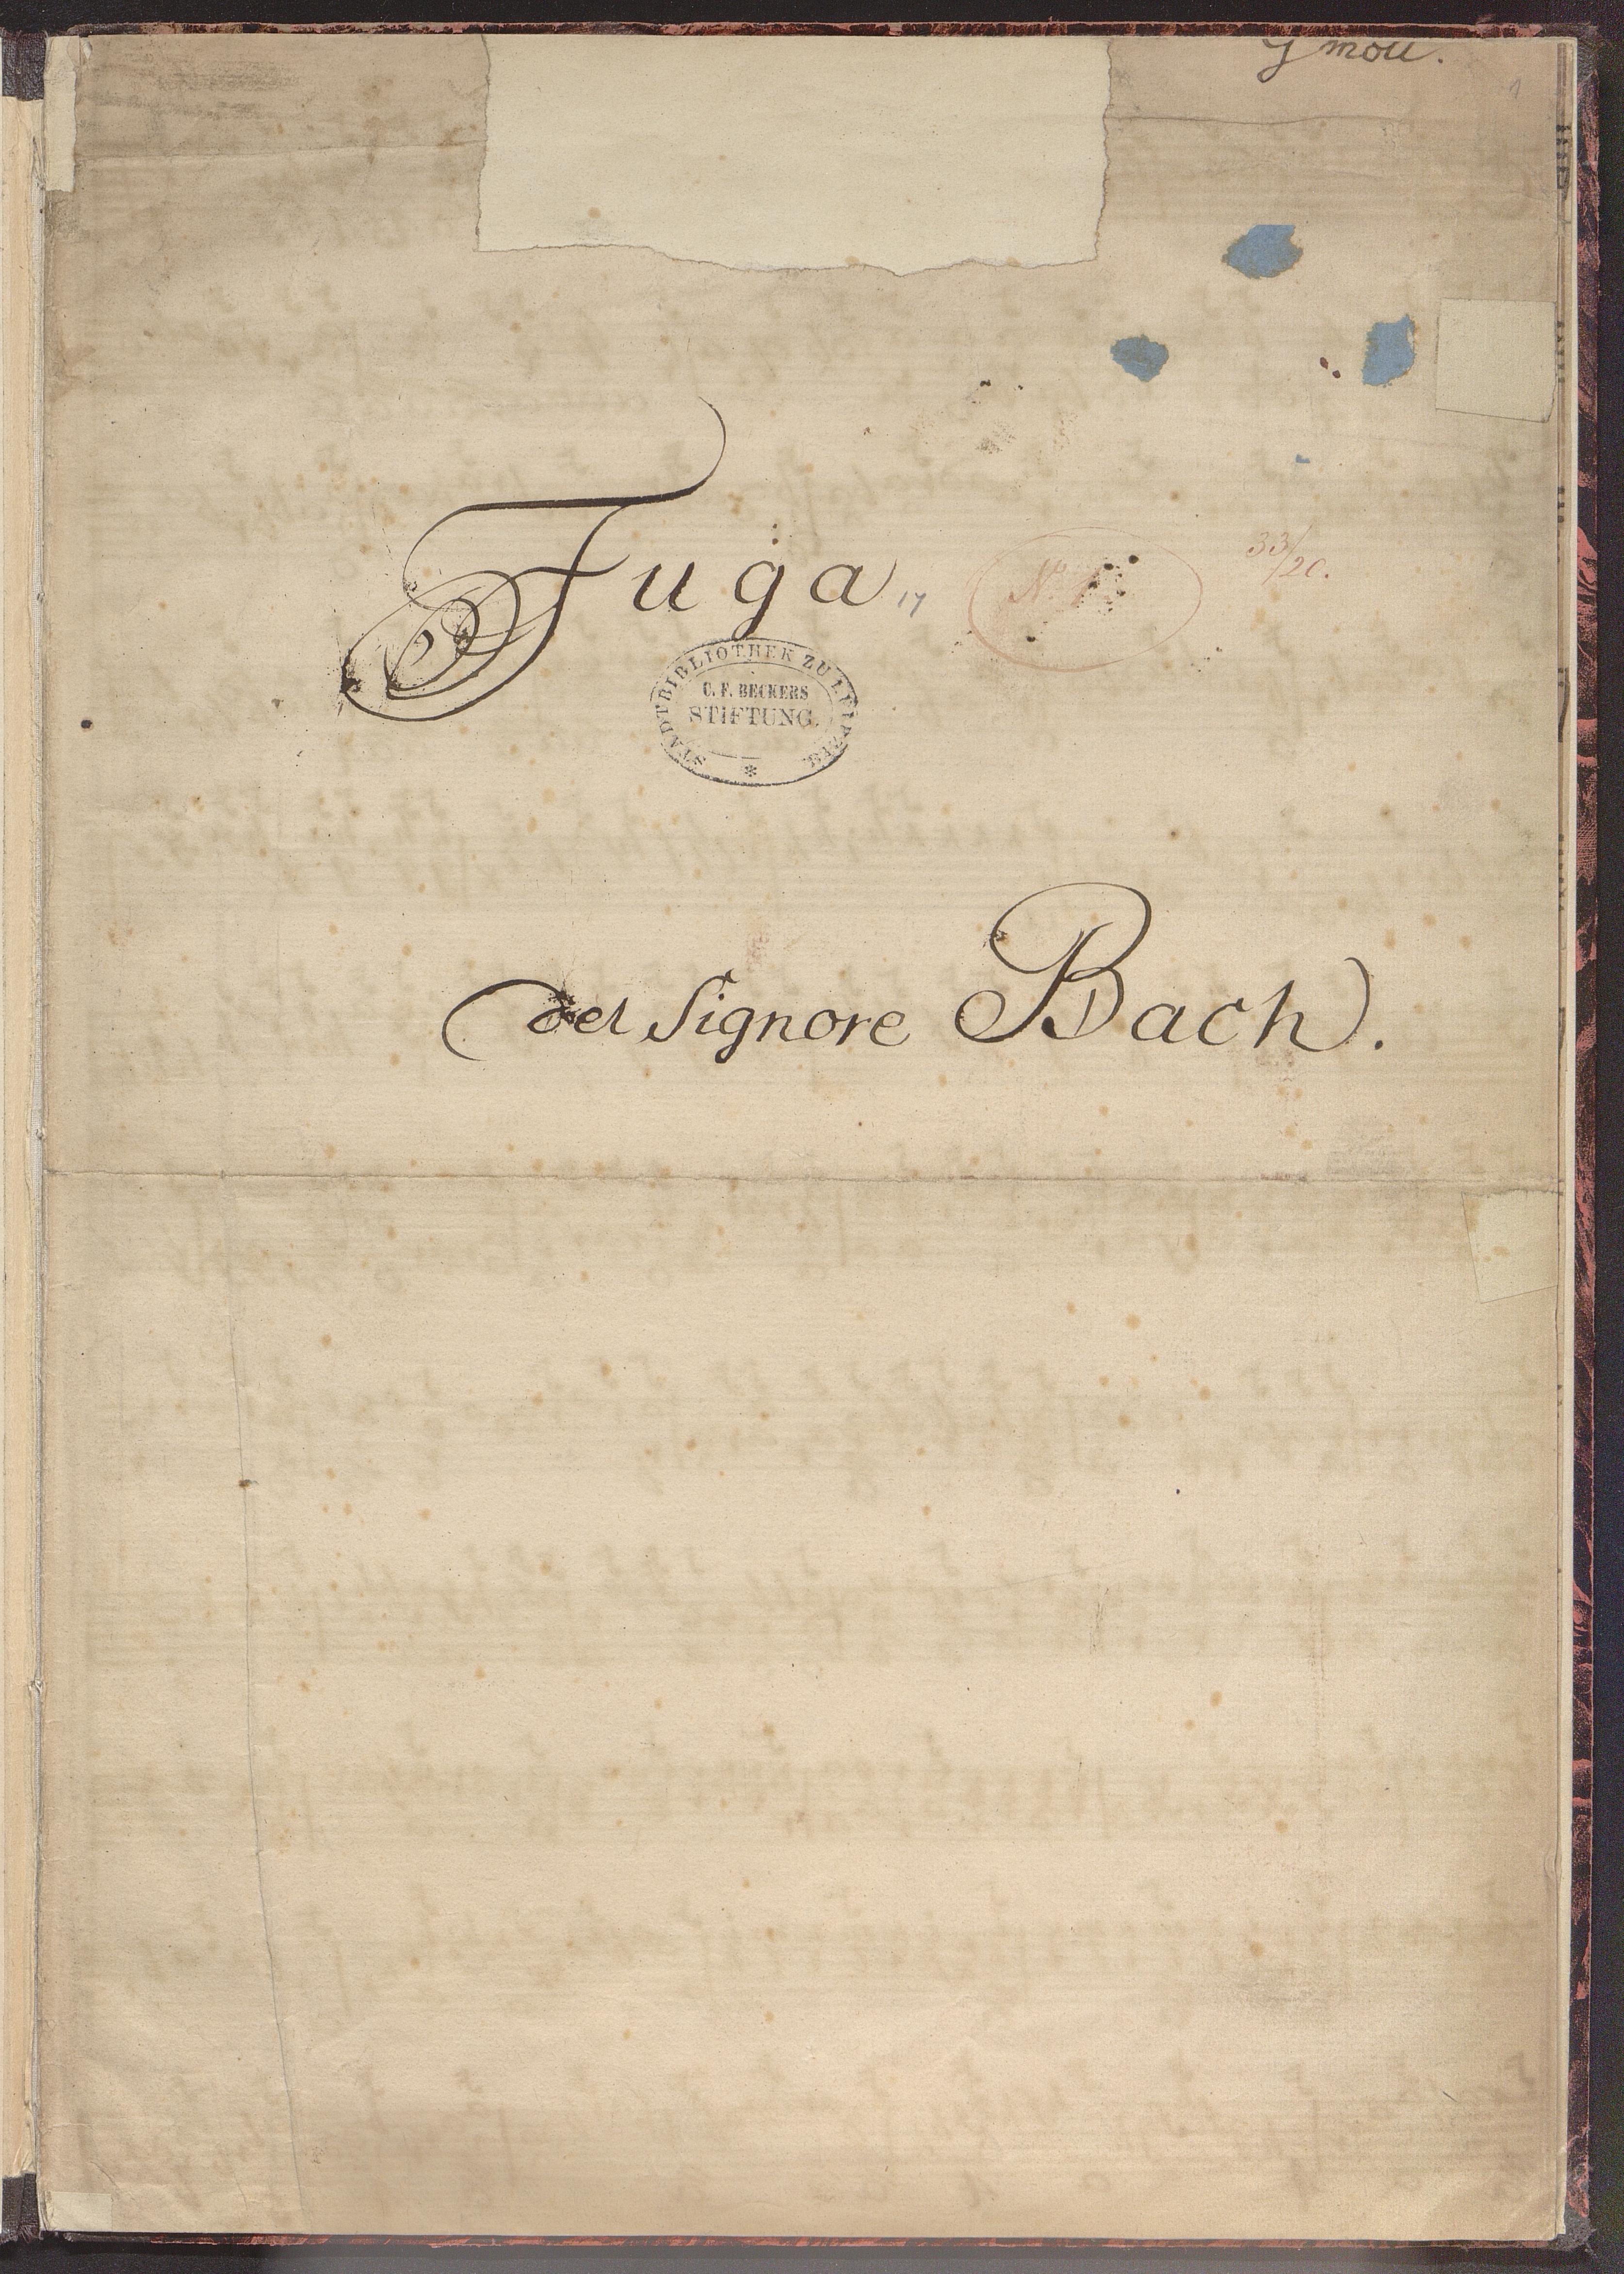 g moll.
1
Fuga. 17
33/20.
STADTBIBLIOTHEK ZU LEIPZIG.
C. F. BECKERS
STIFTUNG.
*
del Signore Bach.